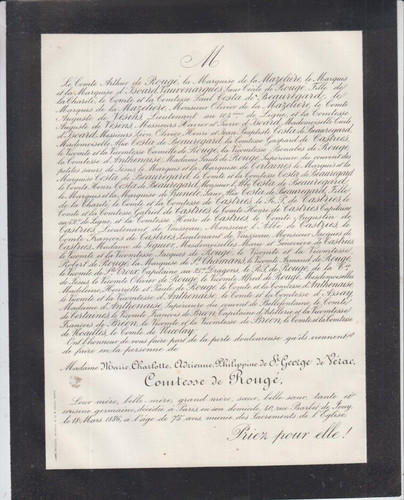 M
Le Comte Arthur de Rougé, la Marquise de la Mazelière, le Marquis
et la Marquise d'Isoard Vauvenargues, Sœur Cécile de Rougé, Fille de
la Charité, le Comte et la Comtesse Paul Costa de Beauregard, le
Marquis de la Mazelière, Monsieur Olivier de la Mazelière, le Comte
Auguste de Vesins Lieutenant au de Ligne, et la Comtesse
Auguste de Vesins, Messieurs Xavier et Pierre d'Isoard, Mademoiselle
d'Isoard, Messieurs Léon, Olivier, Henri et Jean Baptiste Costa de Beauregard,
Mademoiselle Alix Costa de Beauregard, la Comtesse Gaspard de Castries,
le Vicomte et la Vicomtesse Camille de Rougé, la Vicomtesse de Rougé,
la Comtesse d'Anthenaise, Madame Paule de Rougé, Supérieure du couvent des
petites sœurs de le Marquis et la Marquise de Certaines, le Marquis et la
Marquise Costa de Beauregard, le Comte et la Comtesse Costa de Beauregard,
le Comte Henri Costa de Beauregard, Monsieur l'Abbé Costa de Beauregard,
le Marquis et la Marquise de Sœur Costa de Beauregard, Fille
de la Charité, le Comte et la Comtesse de Castries, le R.P. de Castries, le
Comte et la Comtesse Gabriel de Castries, le Comte Henri de Castries, Capitaine
au de Ligne, et la Comtesse Henri de Castries, le Comte Augustin de
Castries, Lieutenant de Vaisseau, Monsieur l'Abbé de Castries, le
Comte François de Castries, Lieutenant de Vaisseau, Monsieur Jacques de
Castries, Madame de Séguier, Mesdemoiselles Marie et Geneviève de Castries,
le Vicomte et la Vicomtesse Jacques de Rougé, le Vicomte et la Vicomtesse
Robert de Rougé, la Marquise de St Chamans, le Vicomte Armand de Rougé,
le Vicomte de Ste Croix, Capitaine au Dragons, le R.P. de Rougé de la Cie
de Jésus, le Vicomte Olivier de Rougé, le Vicomte Albert de Rougé, Mesdemoiselles
Madeleine, Henriette et de Rougé, le Comte et la Comtesse d'Anthenaise,
le Vicomte et la Vicomtesse d'Anthenaise, le Comte et la Comtesse d'Assay,
Madame d'Anthenaise, Supérieure du couvent de le Comte
de Certaines, le Vicomte François de Bréon, Capitaine d'Artillerie et la Vicomtesse
François de Bréon, le Vicomte et la Vicomtesse de Bréon, le Comte et la Comtesse
de Noailles, le Comte de Nicolay
Ont l'honneur de vous faire part de la perte douloureuse qu'ils viennent
de faire en la personne de
Madame Marie, Charlotte, Adrienne, Philippine de St George de Vérac,
Comtesse de Rougé,
Leur mère, belle-mère, grand'mère, sœur, belle-sœur, tante et
cousine germaine, décédée à Paris en son domicile, rue Barbet de Jouy,
le 18 Mars 1886, à l'âge de 75 ans, munie des Sacrements de l'Eglise.
Priez pour elle!